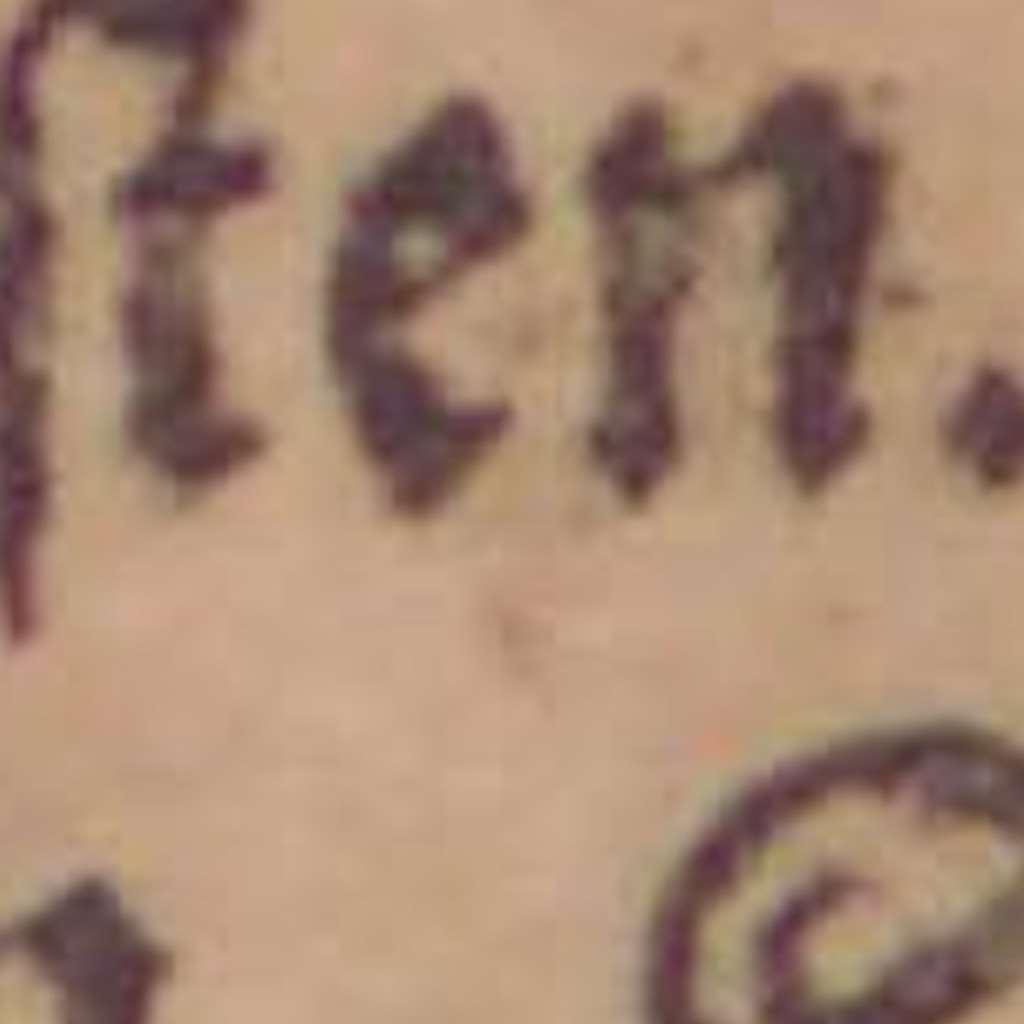 ſten.